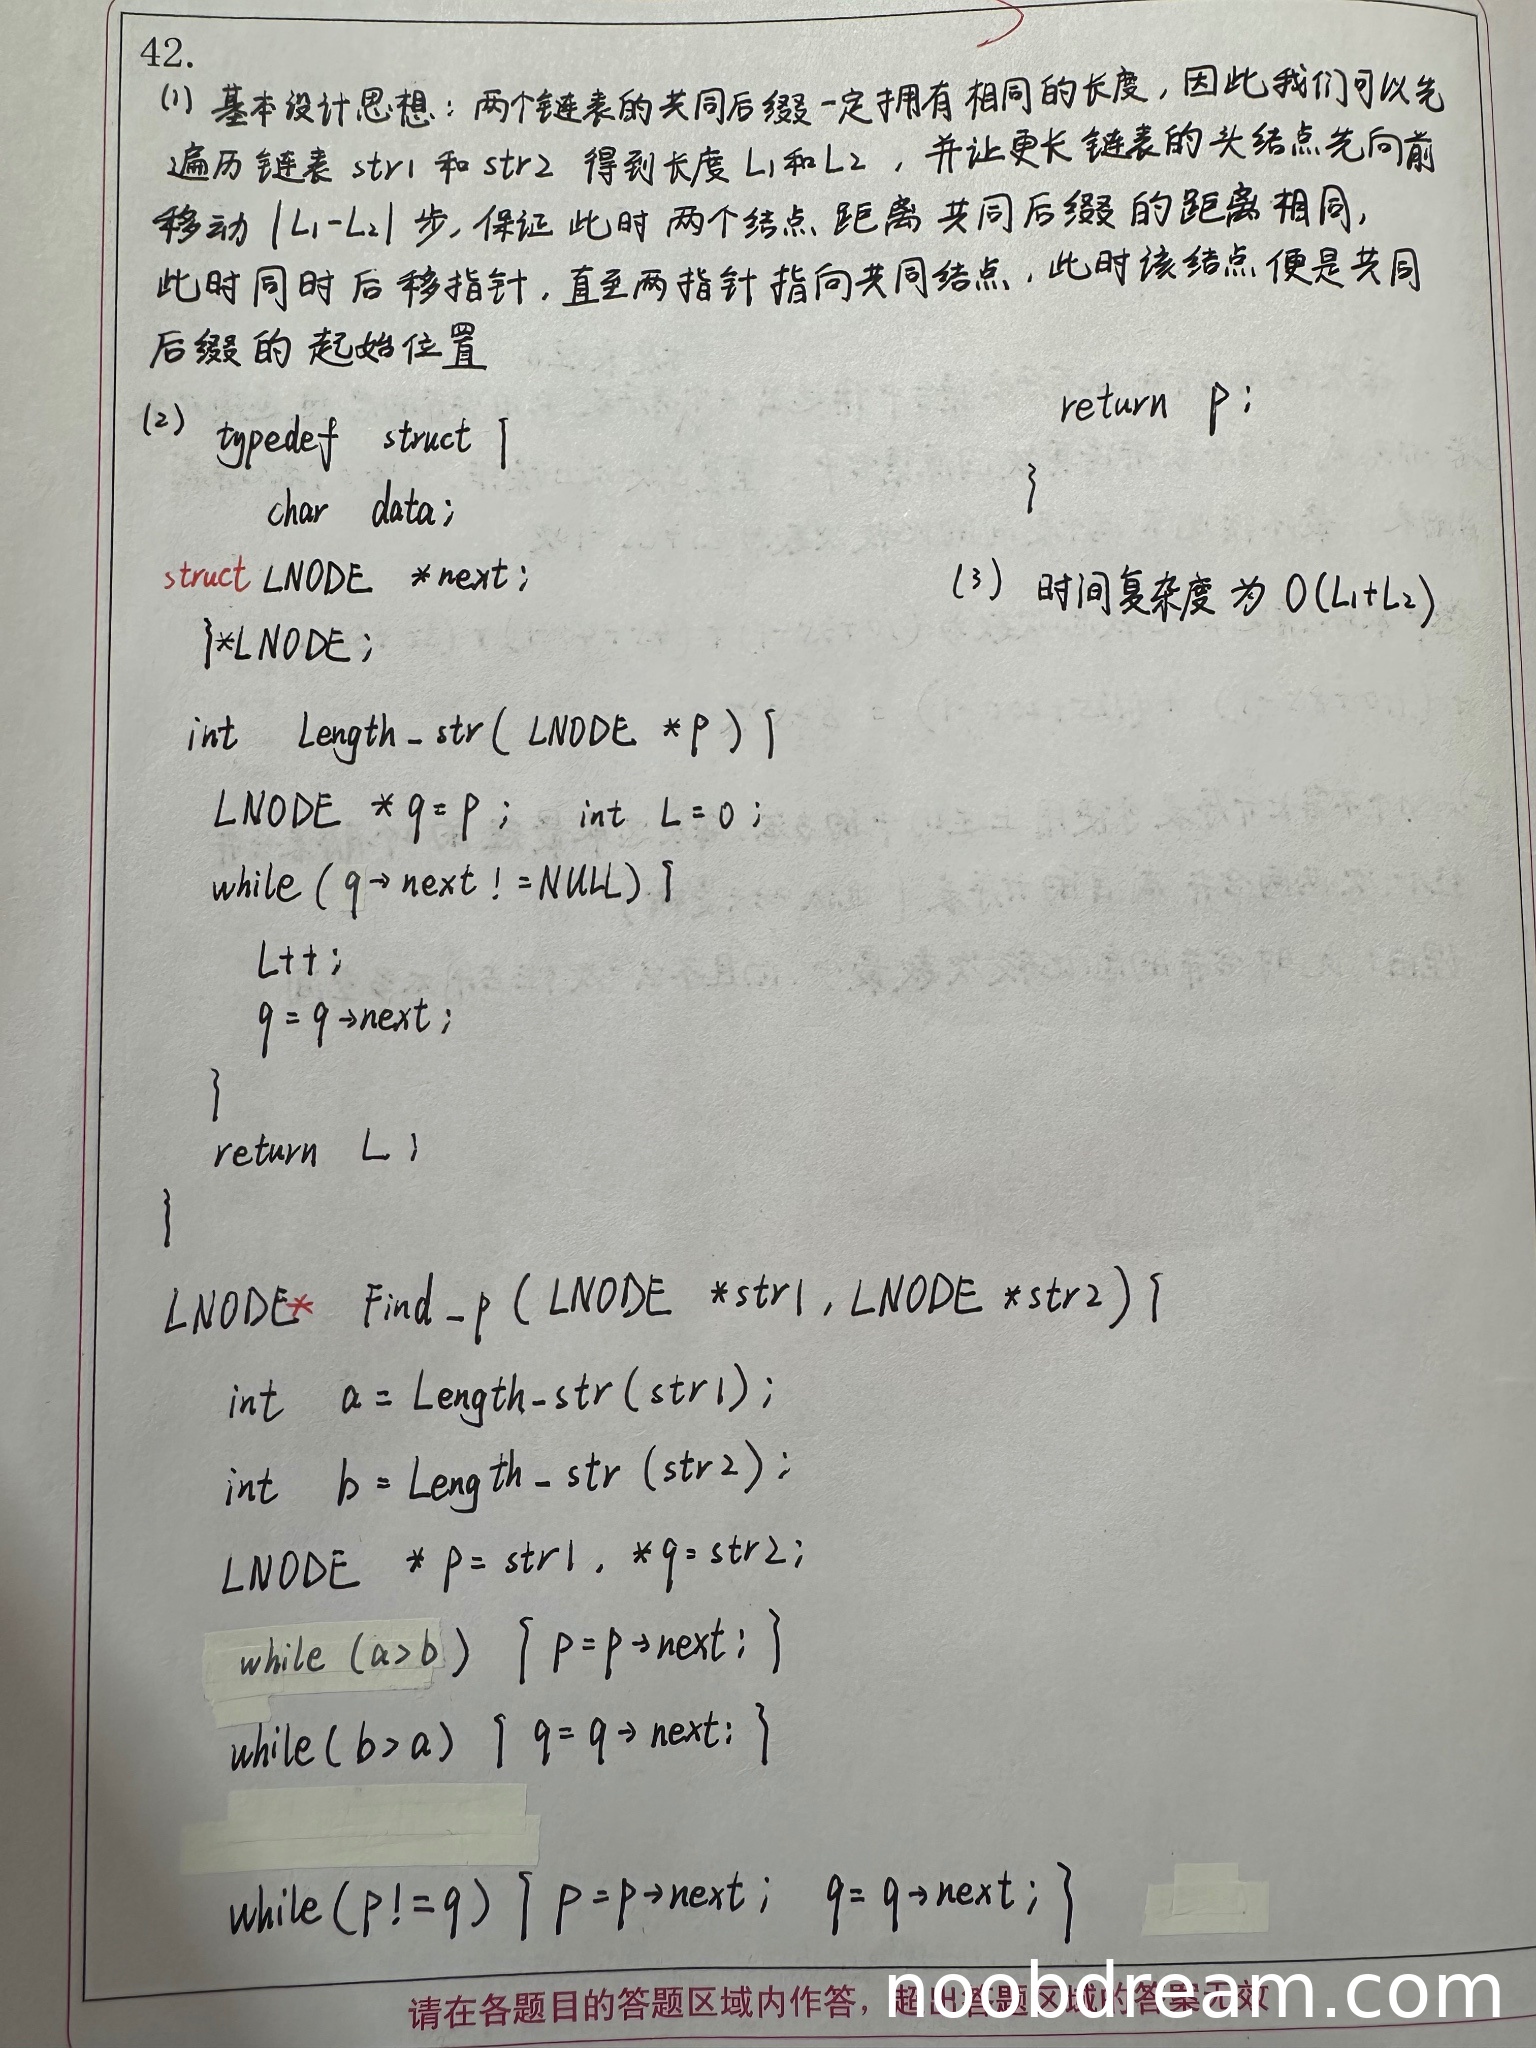 42.
(1) 基本设计思想：两个链表的共同后缀一定拥有相同的长度，因此我们可以先
遍历链表 str1 和 str2 得到长度 L1和L2，并让更长链表的头结点先向前
移动 |L1-L2| 步，保证此时两个结点距离共同后缀的距离相同，
此时同时后移指针，直至两指针指向共同结点，此时该结点便是共同
后缀的起始位置
(2) typedef struct {
char data;
struct LNODE *next;
}*LNODE;
int Length_str( LNODE *p ) {
LNODE *q=p; int L=0;
while (q→next != NULL) {
L++;
q=q→next;
}
return L;
}
LNODE* Find_p ( LNODE *str1, LNODE *str2) {
int a = Length_str(str1);
int b = Length_str (str2);
LNODE *p = str1, *q=str2;
while (a>b) { p=p→next; }
while(b>a) { q=q→next; }
while(p!=q) { p=p→next; q=q→next; }
return p;
}
(3) 时间复杂度为 O(L1+L2)
请在各题目的答题区域内作答，超出答题区域的答案无效
noobdream.com